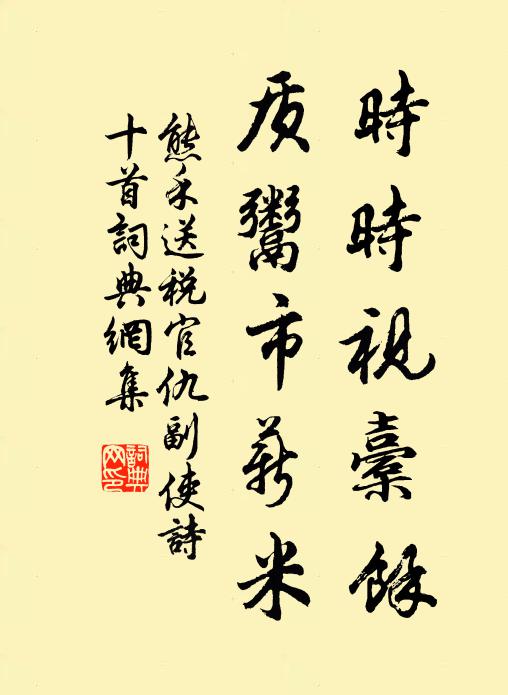 時時視橐餘
质鬻市薪米
熊禾送税官仇副使詩
十首詞典網集
詞典网印